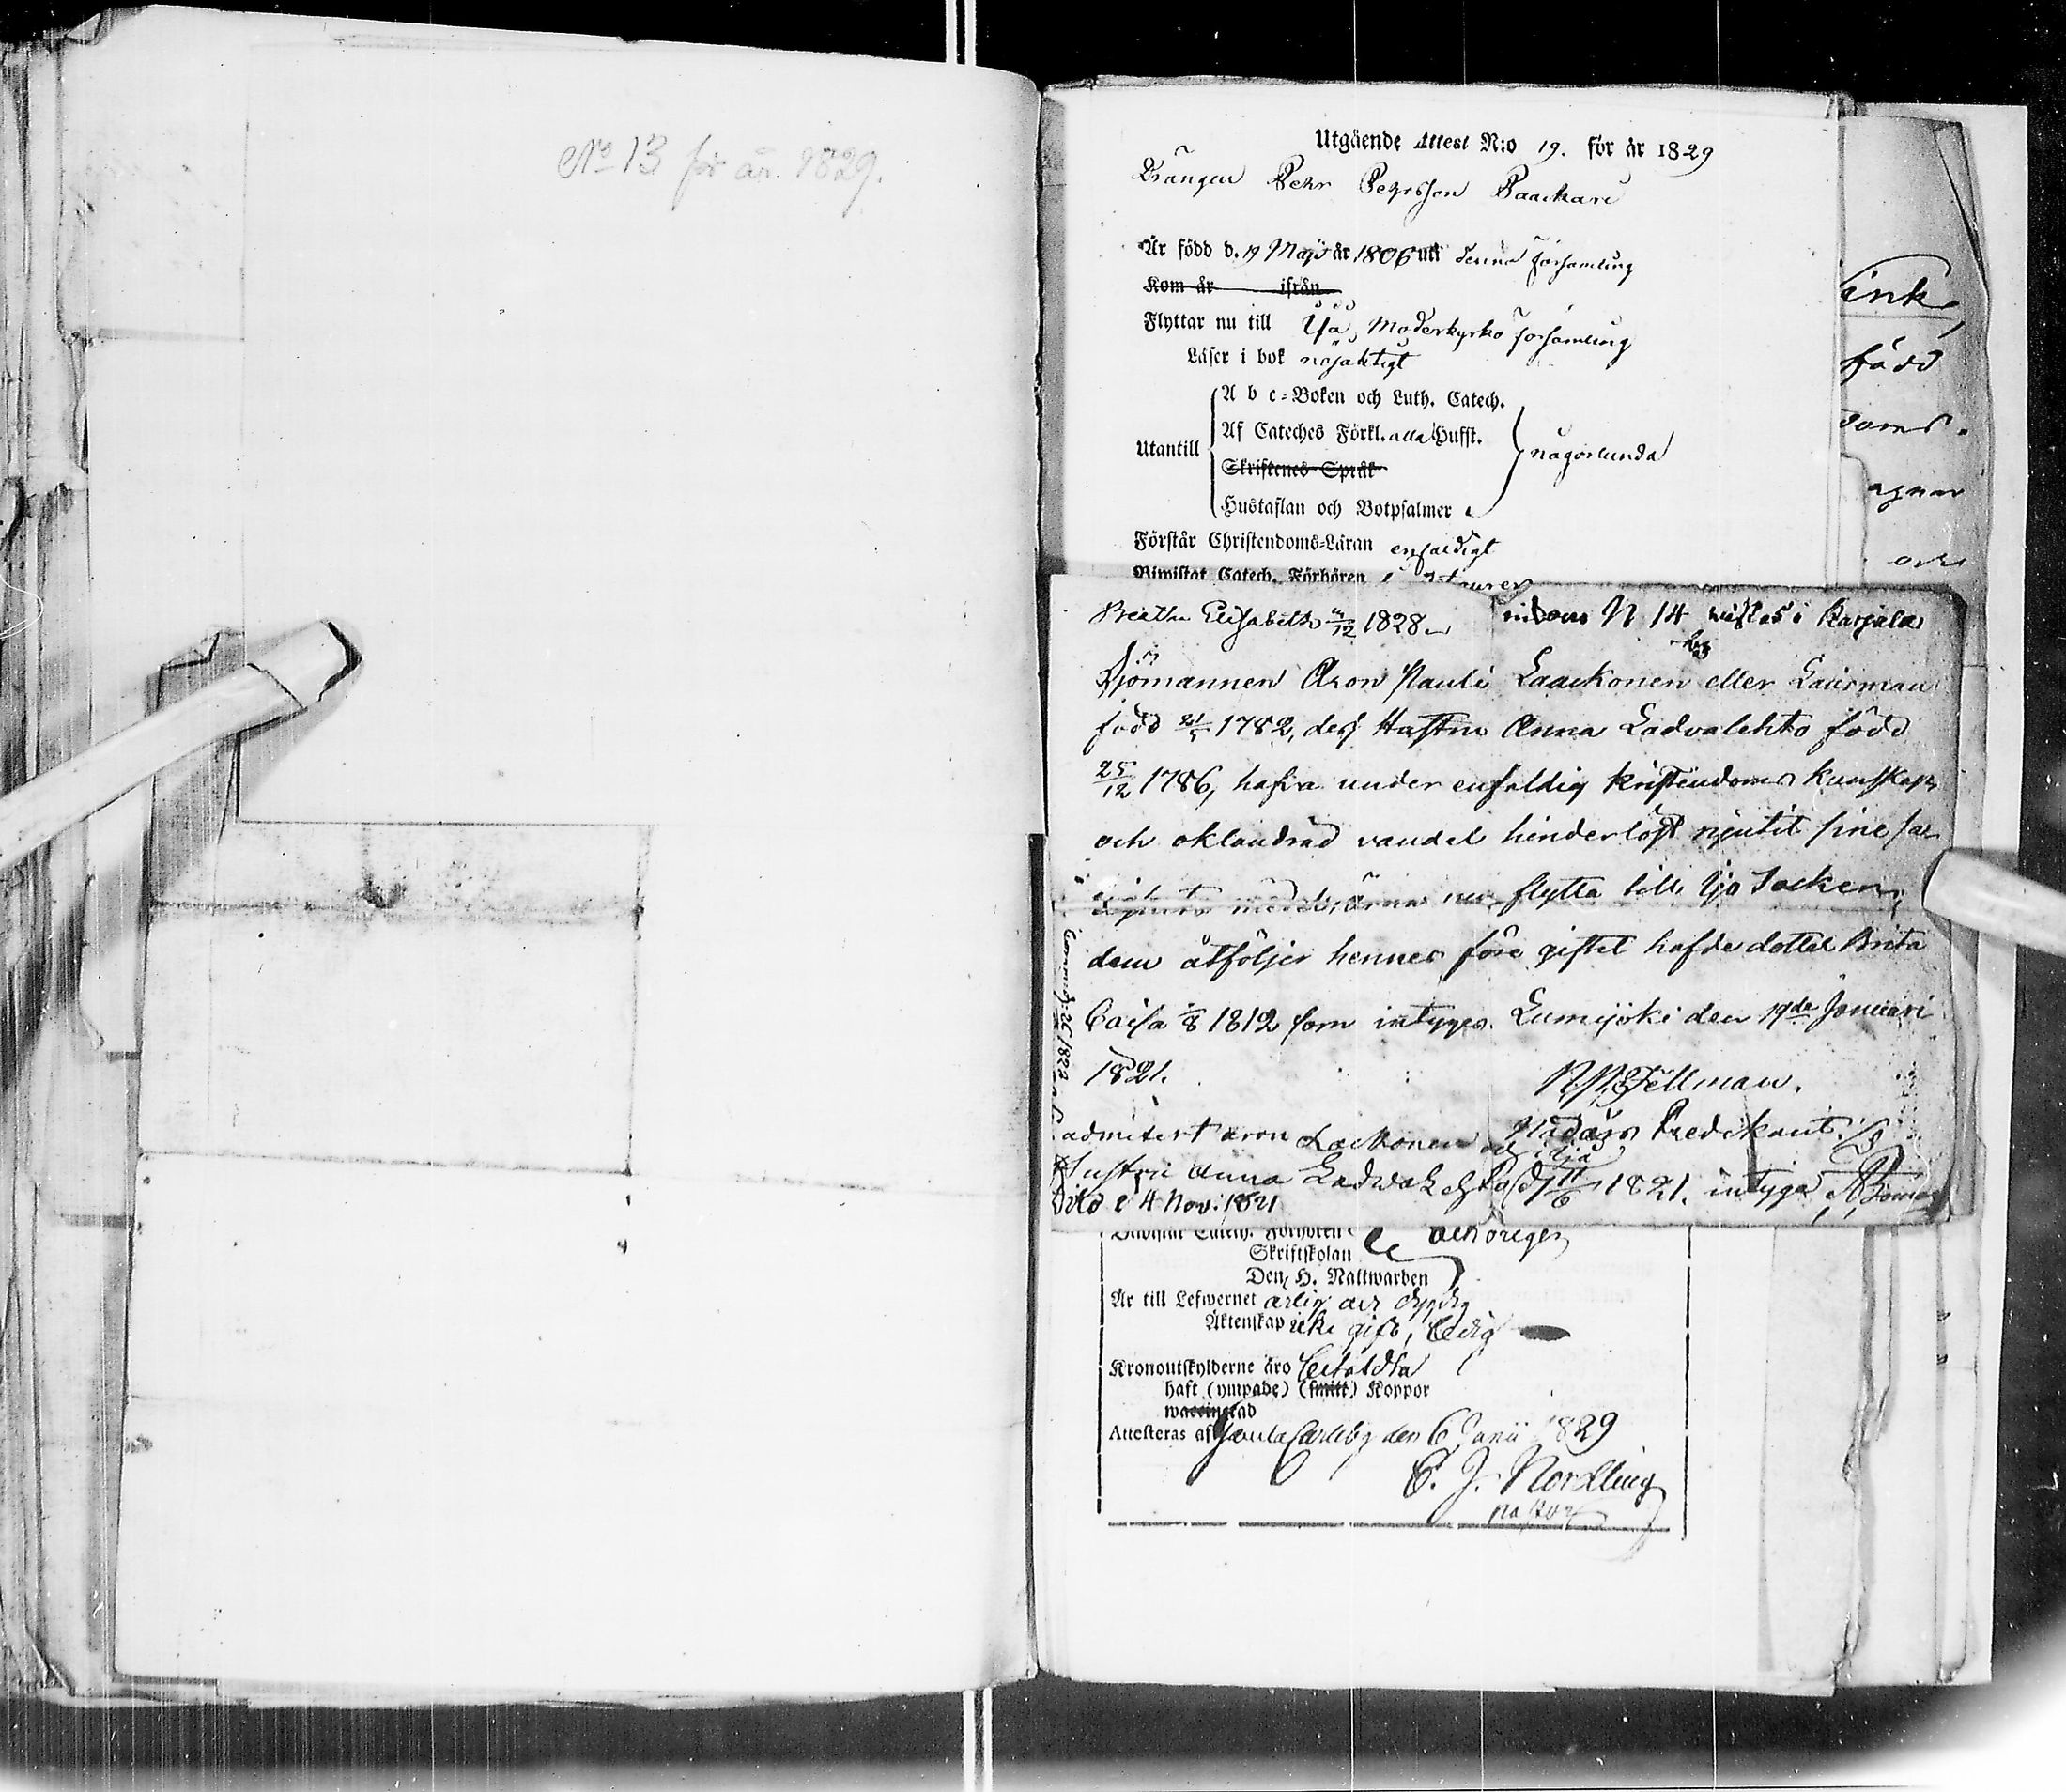 No 13 för år. 1829.
Utgående Attest N:o 19. för år 1829
Drängen Pehr Pehrsson Paackari
Är född d. 19 Maji år 1806 uti denna församling
Kom år ifrån
Flyttar nu till Ijå Moderkyrko församling
Läser i bok nöjaktigt
A b c-Boken och Luth. Catech.
Af Cateches Förkl. alla Hufst.
Utantill någorlunda
Skriftenes Språk
Hustaflan och Botpsalmer
Förstår Christendoms-Läran enfaldigt
Bimistat Catech. Förhören
Beatha Elisabeth 12 1828 N 14 wistas i Karjala
Sjömannen Aron Pauli Laackonen eller Lauerman
född 1782, dess Hustru Anna Ladvalehto född
25/12 1786, hafva under enfaldig kristendoms kunskap
och oklandrad vandel hinderlöst njutit sine sa
nu flytta till Ijo Socken,
dem åtföljer hennes före giftet hafde dotter Brita
Caisa 8 1812 som intygas. Lumijoki den 19de Januari
1821. Fellman.
Nådårs Predikant.
admiterit Aron Lackonen
Hustru Anna 1821. intygar
Dito d 4 Nov. 1821
Bimistat Catech. Förhören
Skriftskolan
Den H. Nattwarden
Är till Lefwernet ärlig och dygdig
Äktenskap icke gift, ledig
Kronoutskylderne äro betaldta
haft (ympade) (smitt.) Koppor
waccinerad
Attesteras af Gamla Carleby den 6 Junii 1829
C. J. Nordling
pastor
ink
född
doms.
agnar
och